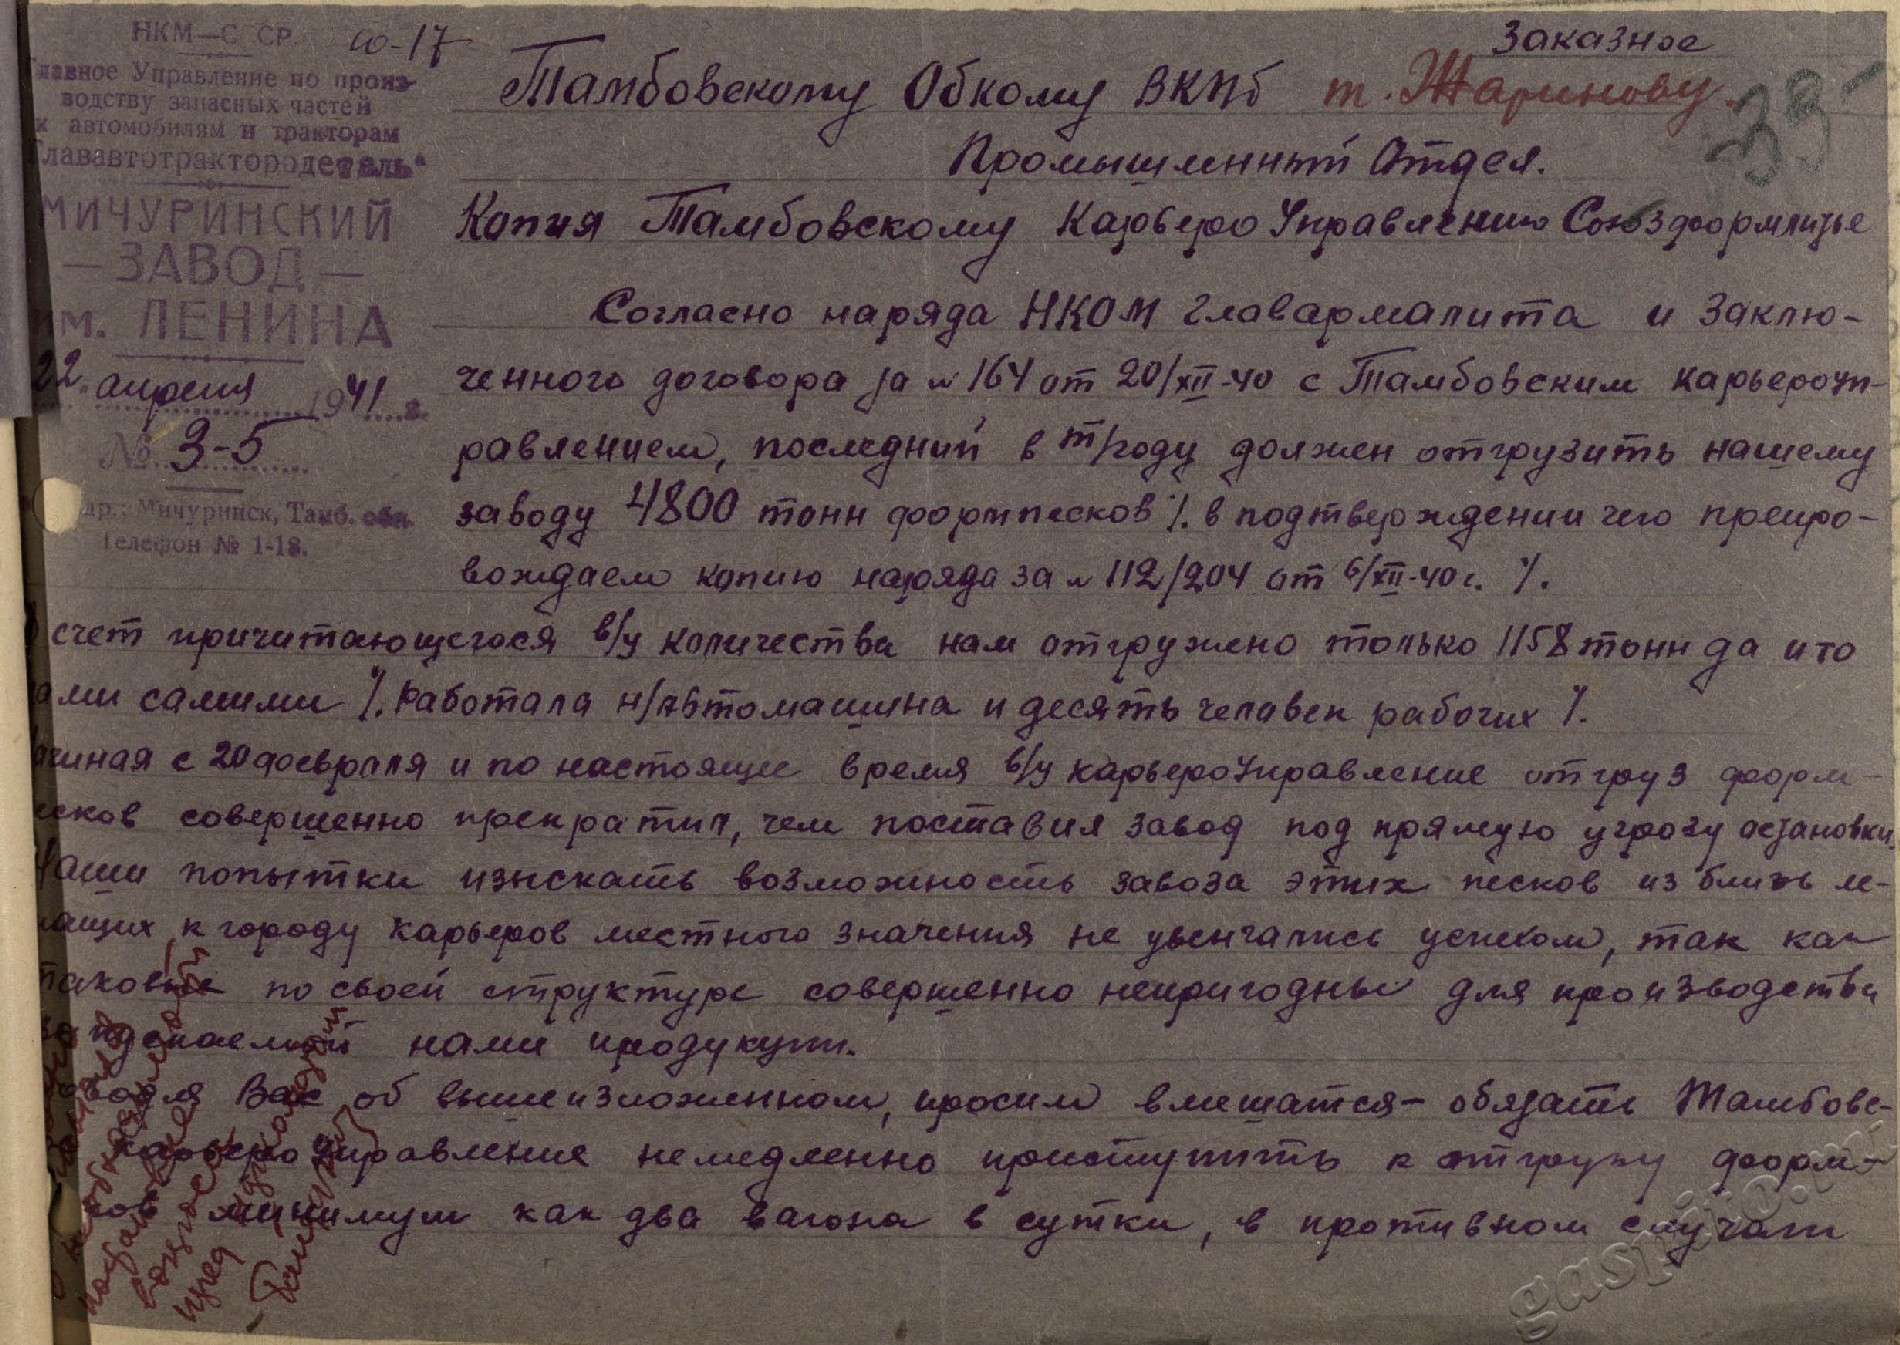 НКМ—С СР.
ю-17
Главное Управление по произ-
водству запасных частей
к автомобилям и тракторам
"Глававтотрактородеталь"
МИЧУРИНСКИЙ
— ЗАВОД —
им. ЛЕНИНА
22 апреля 1941 г.
№ 3-5
Адр.: Мичуринск, Тамб. обл.
Телефон № 1-18.
Заказное
Тамбовскому Обкому ВКПб т. Жаринову.
39
Промышленный Отдел.
Копия Тамбовскому Карьеро Управлению Союзформлитье
Согласно наряда НКОМ Главармалита и заклю-
ченного договора за № 164 от 20/XII-40 с Тамбовским карьероуп-
равлением, последний в т/году должен отгрузить нашему
заводу 4800 тонн формпесков /. в подтверждении чего препро-
вождаем копию наряда за № 112/204 от 6/XII-40 г. /.
В счет причитающегося в/у количества нам отгружено только 1158 тонн да и то
нами самими /. Работала н/автомашина и десять человек рабочих /.
Начиная с 20 февраля и по настоящее время в/у карьероуправление отгруз форм-
песков совершенно прекратил, чем поставил завод под прямую угрозу остановки.
Наши попытки изыскать возможность завоза этих песков из близь ле-
жащих к городу карьеров местного значения не увенчались успехом, так как
таковые по своей структуре совершенно непригодны для производства
выпускаемой нами продукции.
Вас об вышеизложенном, просим вмешатся - обязать Тамбовс-
карьероуправление немедленно приступить к отгрузу форм-
ков минимум как два вагона в сутки, в противном случаи
gaspito.ru